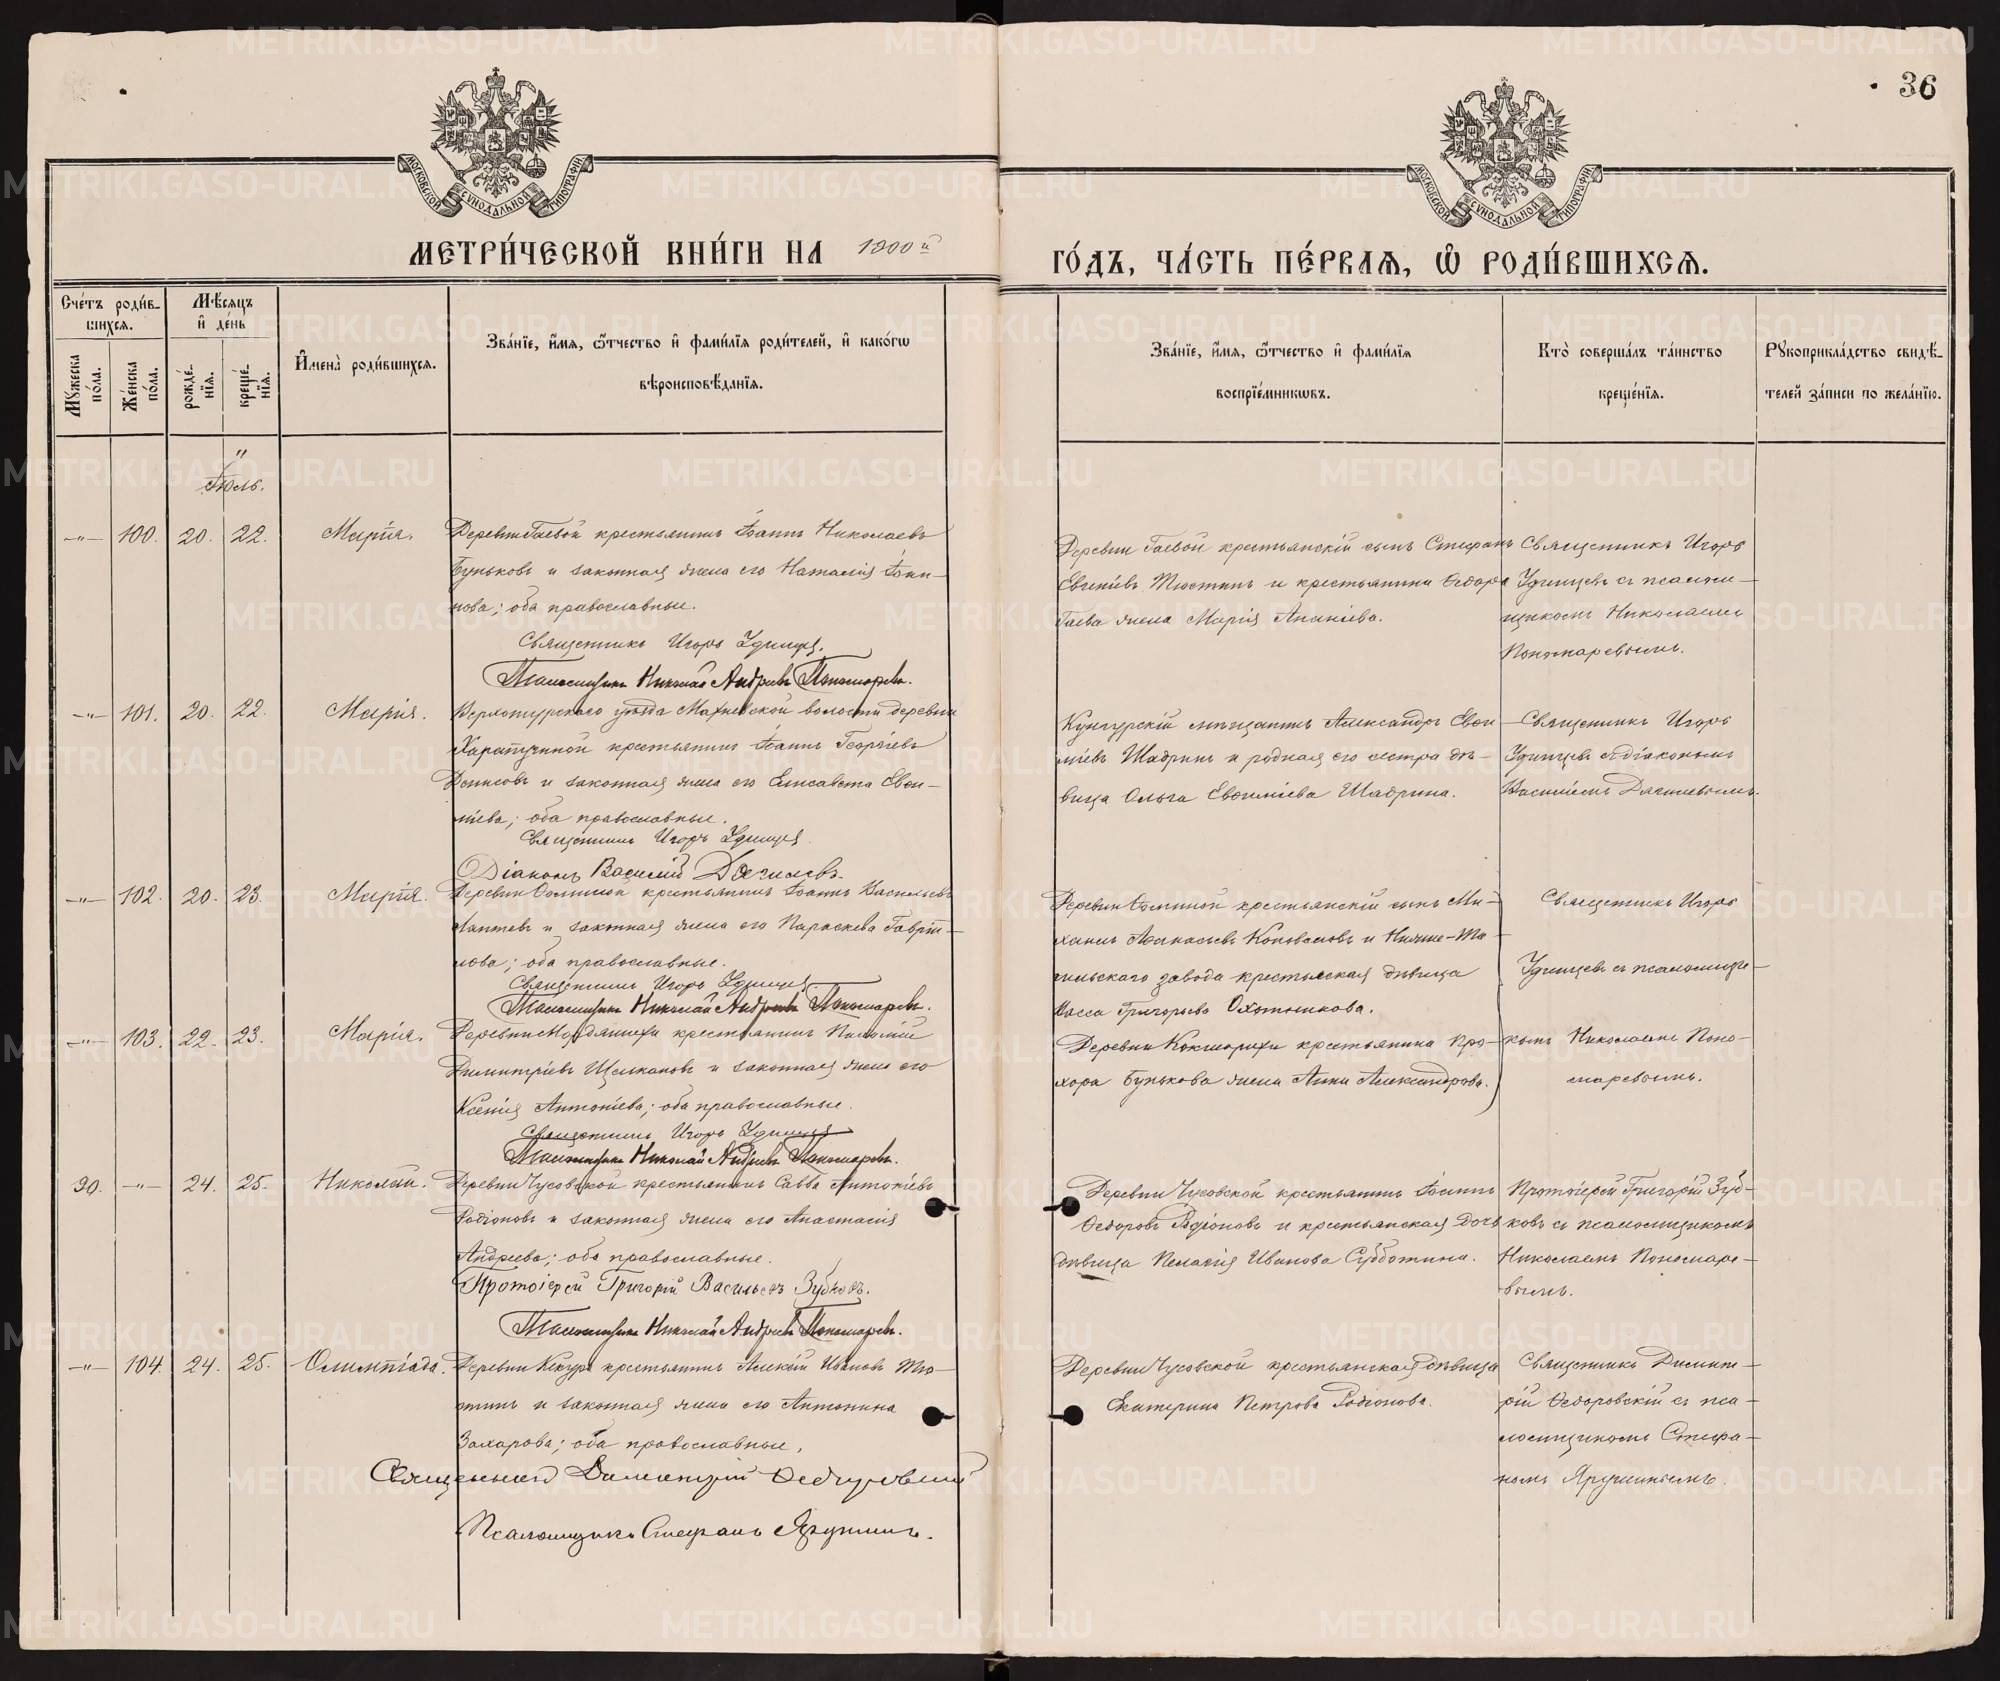 36
МОСКОВСКОЙ СѴНОДАЛЬНОЙ ТИПОГРАФІИ
МОСКОВСКОЙ СѴНОДАЛЬНОЙ ТИПОГРАФІИ
МЕТРИ́ЧЕСКОЙ КНИ́ГИ НА 1900й
ГО́ДЪ, ЧА́СТЬ ПЕ́РВАѦ, Ѡ РОДИ́ВШИХСѦ.
Сче́тъ роди́вшихсѧ.
Мѣ́сѧцъ и де́нь
Мꙋжеска по́ла.
Же́нска по́ла.
рожде́нїѧ.
креще́нїѧ.
Имена̀ роди́вшихсѧ.
Зва́нїе, и́мѧ, ѻ́тчество и фами́лїѧ роди́телей, и како́гѡ
вѣроисповѣ́данїѧ.
Зва́нїе, и́мѧ, ѻ́тчество и фами́лїѧ
воспрїе́мникѡвъ.
Кто̀ соверша́лъ та́инство
креще́нїѧ.
Рꙋкоприкла́дство свидѣ́-
телей за́писи по жела́нїю.
Іюль.
-"- 100. 20. 22. Марія. Деревни Гаевой крестьянинъ Іоаннъ Николаевъ
Буньковъ и законная жена его Наталія Іоки-
мова; оба православные.
Священникъ Игорь Удинцев.
Псаломщикъ Николай Андреевъ Пономаревъ.
Деревни Гаевой крестьянскій сынъ Стефанъ
Евгеніевъ Тюстинъ и крестьянина Ѳедора
Гаева жена Марія Ананіева.
Священникъ Игорь
Удинцевъ съ псалом-
щикомъ Николаемъ
Пономаревымъ.
-"- 101. 20. 22. Марія. Верхотурскаго уѣзда Махневской волости деревни
крестьянинъ Іоаннъ Георгіевъ
Денисовъ и законная жена его Елисавета Евѳи-
міева; оба православные.
Священникъ Игорь Удинцев
Діаконъ Василій Дягилевъ
Кунгурскій мѣщанинъ Александръ Евѳи-
міевъ Шадринъ и родная его сестра дѣ-
вица Ольга Евѳиміева Шадрина.
Священникъ Игорь
Удинцевъ съ діакономъ
Василіемъ Дягилевымъ.
-"- 102. 20. 23. Марія. Деревни Ѳоминой крестьянинъ Іоаннъ Васильевъ
Лаптевъ и законная жена его Параскева Гаврі-
лова; оба православные.
Священникъ Игорь Удинцев
Псаломщикъ Николай Андреевъ Пономаревъ.
Деревни Ѳоминой крестьянскій сынъ Ми-
хаилъ Аѳанасьевъ Коноваловъ и Нижне-Та-
гильскаго завода крестьянская дѣвица
Григорьева Охотникова.
Священникъ Игорь
Удинцевъ съ псаломщи-
комъ Николаемъ Поно-
маревымъ.
-"- 103. 22. 23. Марія. Деревни Мордяшихи крестьянинъ
Димитріевъ Щелкановъ и законная жена его
Ксенія Антоніева; оба православные.
Священникъ Игорь Удинцев
Псаломщикъ Николай Андреевъ Пономаревъ.
Деревни Кокшарихи крестьянина Про-
хора Бунькова жена Анна Александрова.
90. -"- 24. 25. Николай. Деревни Чусовской крестьянинъ Савва Антоніевъ
Родіоновъ и законная жена его Анастасія
Андреева; оба православные.
Протоіерей Григорій Васильевъ Зубковъ.
Псаломщикъ Николай Андреевъ Пономаревъ.
Деревни Чусовской крестьянинъ Іоаннъ
Ѳедоровъ Родіоновъ и крестьянская дочь
дѣвица Пелагія Иванова Субботина.
Протоіерей Григорій Зуб-
ковъ съ псаломщикомъ
Николаемъ Пономаре-
вымъ.
-"- 104. 24. 25. Олимпіада. Деревни Кекура крестьянинъ Алексій Ивановъ Тю-
тинъ и законная жена его Антонина
Захарова; оба православные.
Священникъ Димитрій Ѳедоровскій
Псаломщикъ Стефанъ Ярушинъ.
Деревни Чусовской крестьянская дѣвица
Екатерина Петрова Родіонова.
Священникъ Димит-
рій Ѳедоровскій съ пса-
ломщикомъ Стефа-
номъ Ярушинымъ.